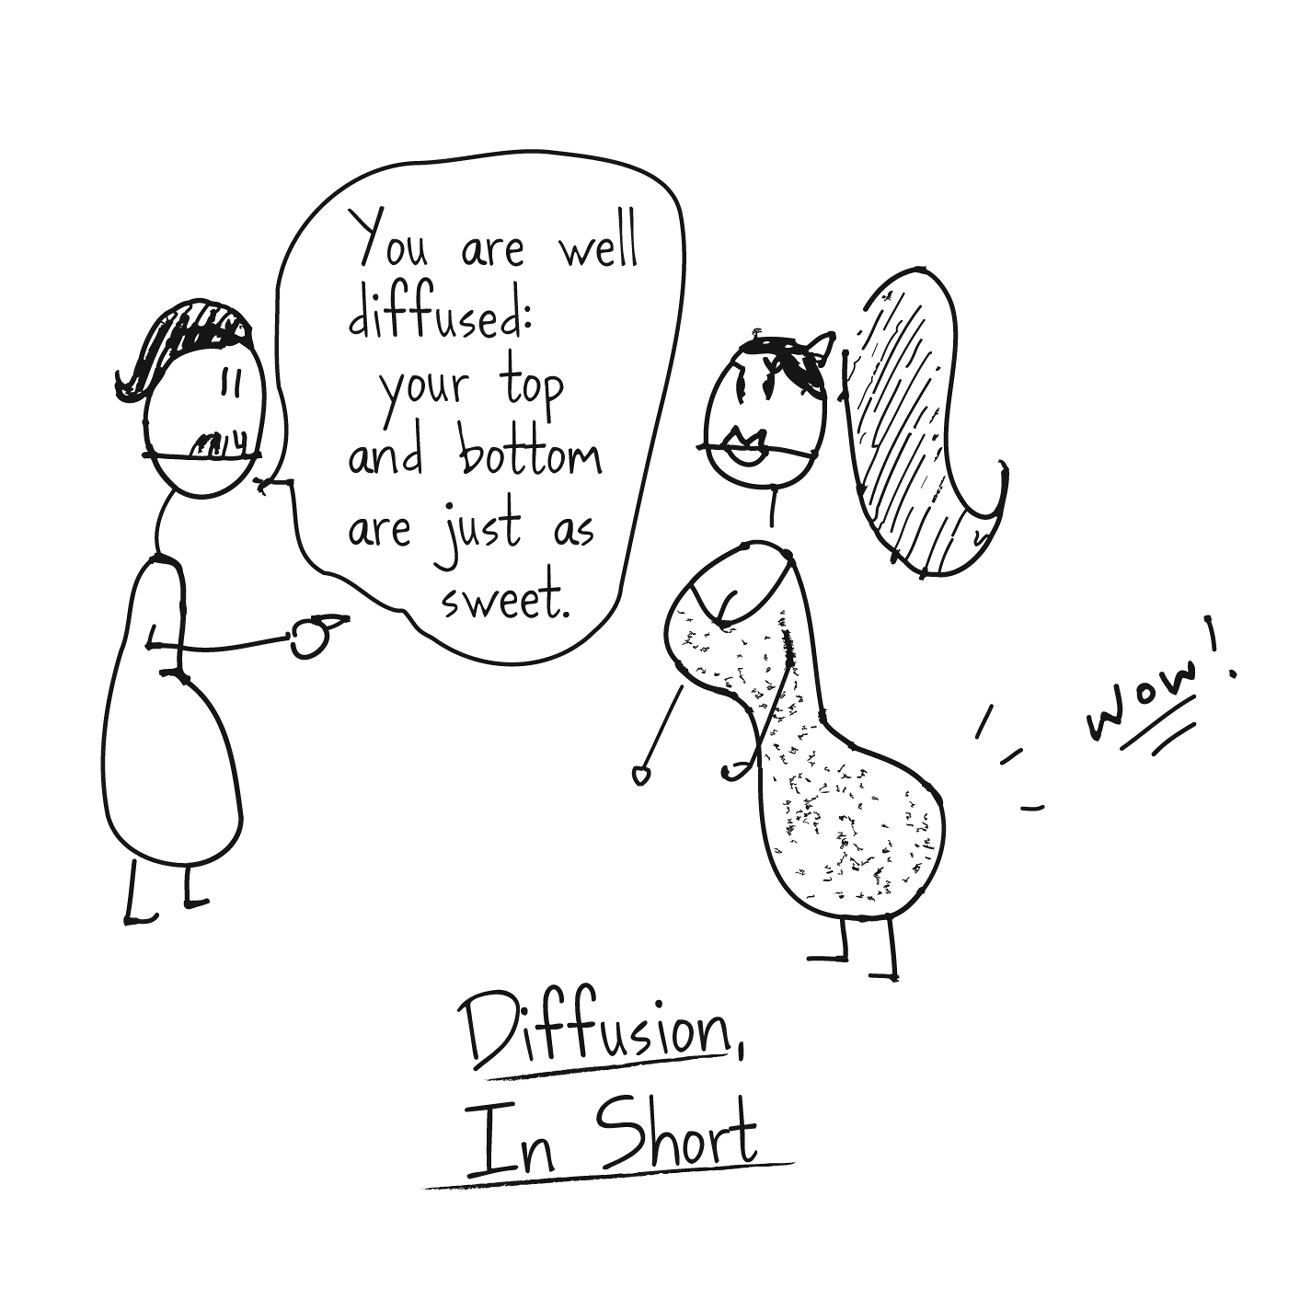 You are well
diffused:
your top
and bottom
are just as
sweet.
Wow!
Diffusion,
In Short